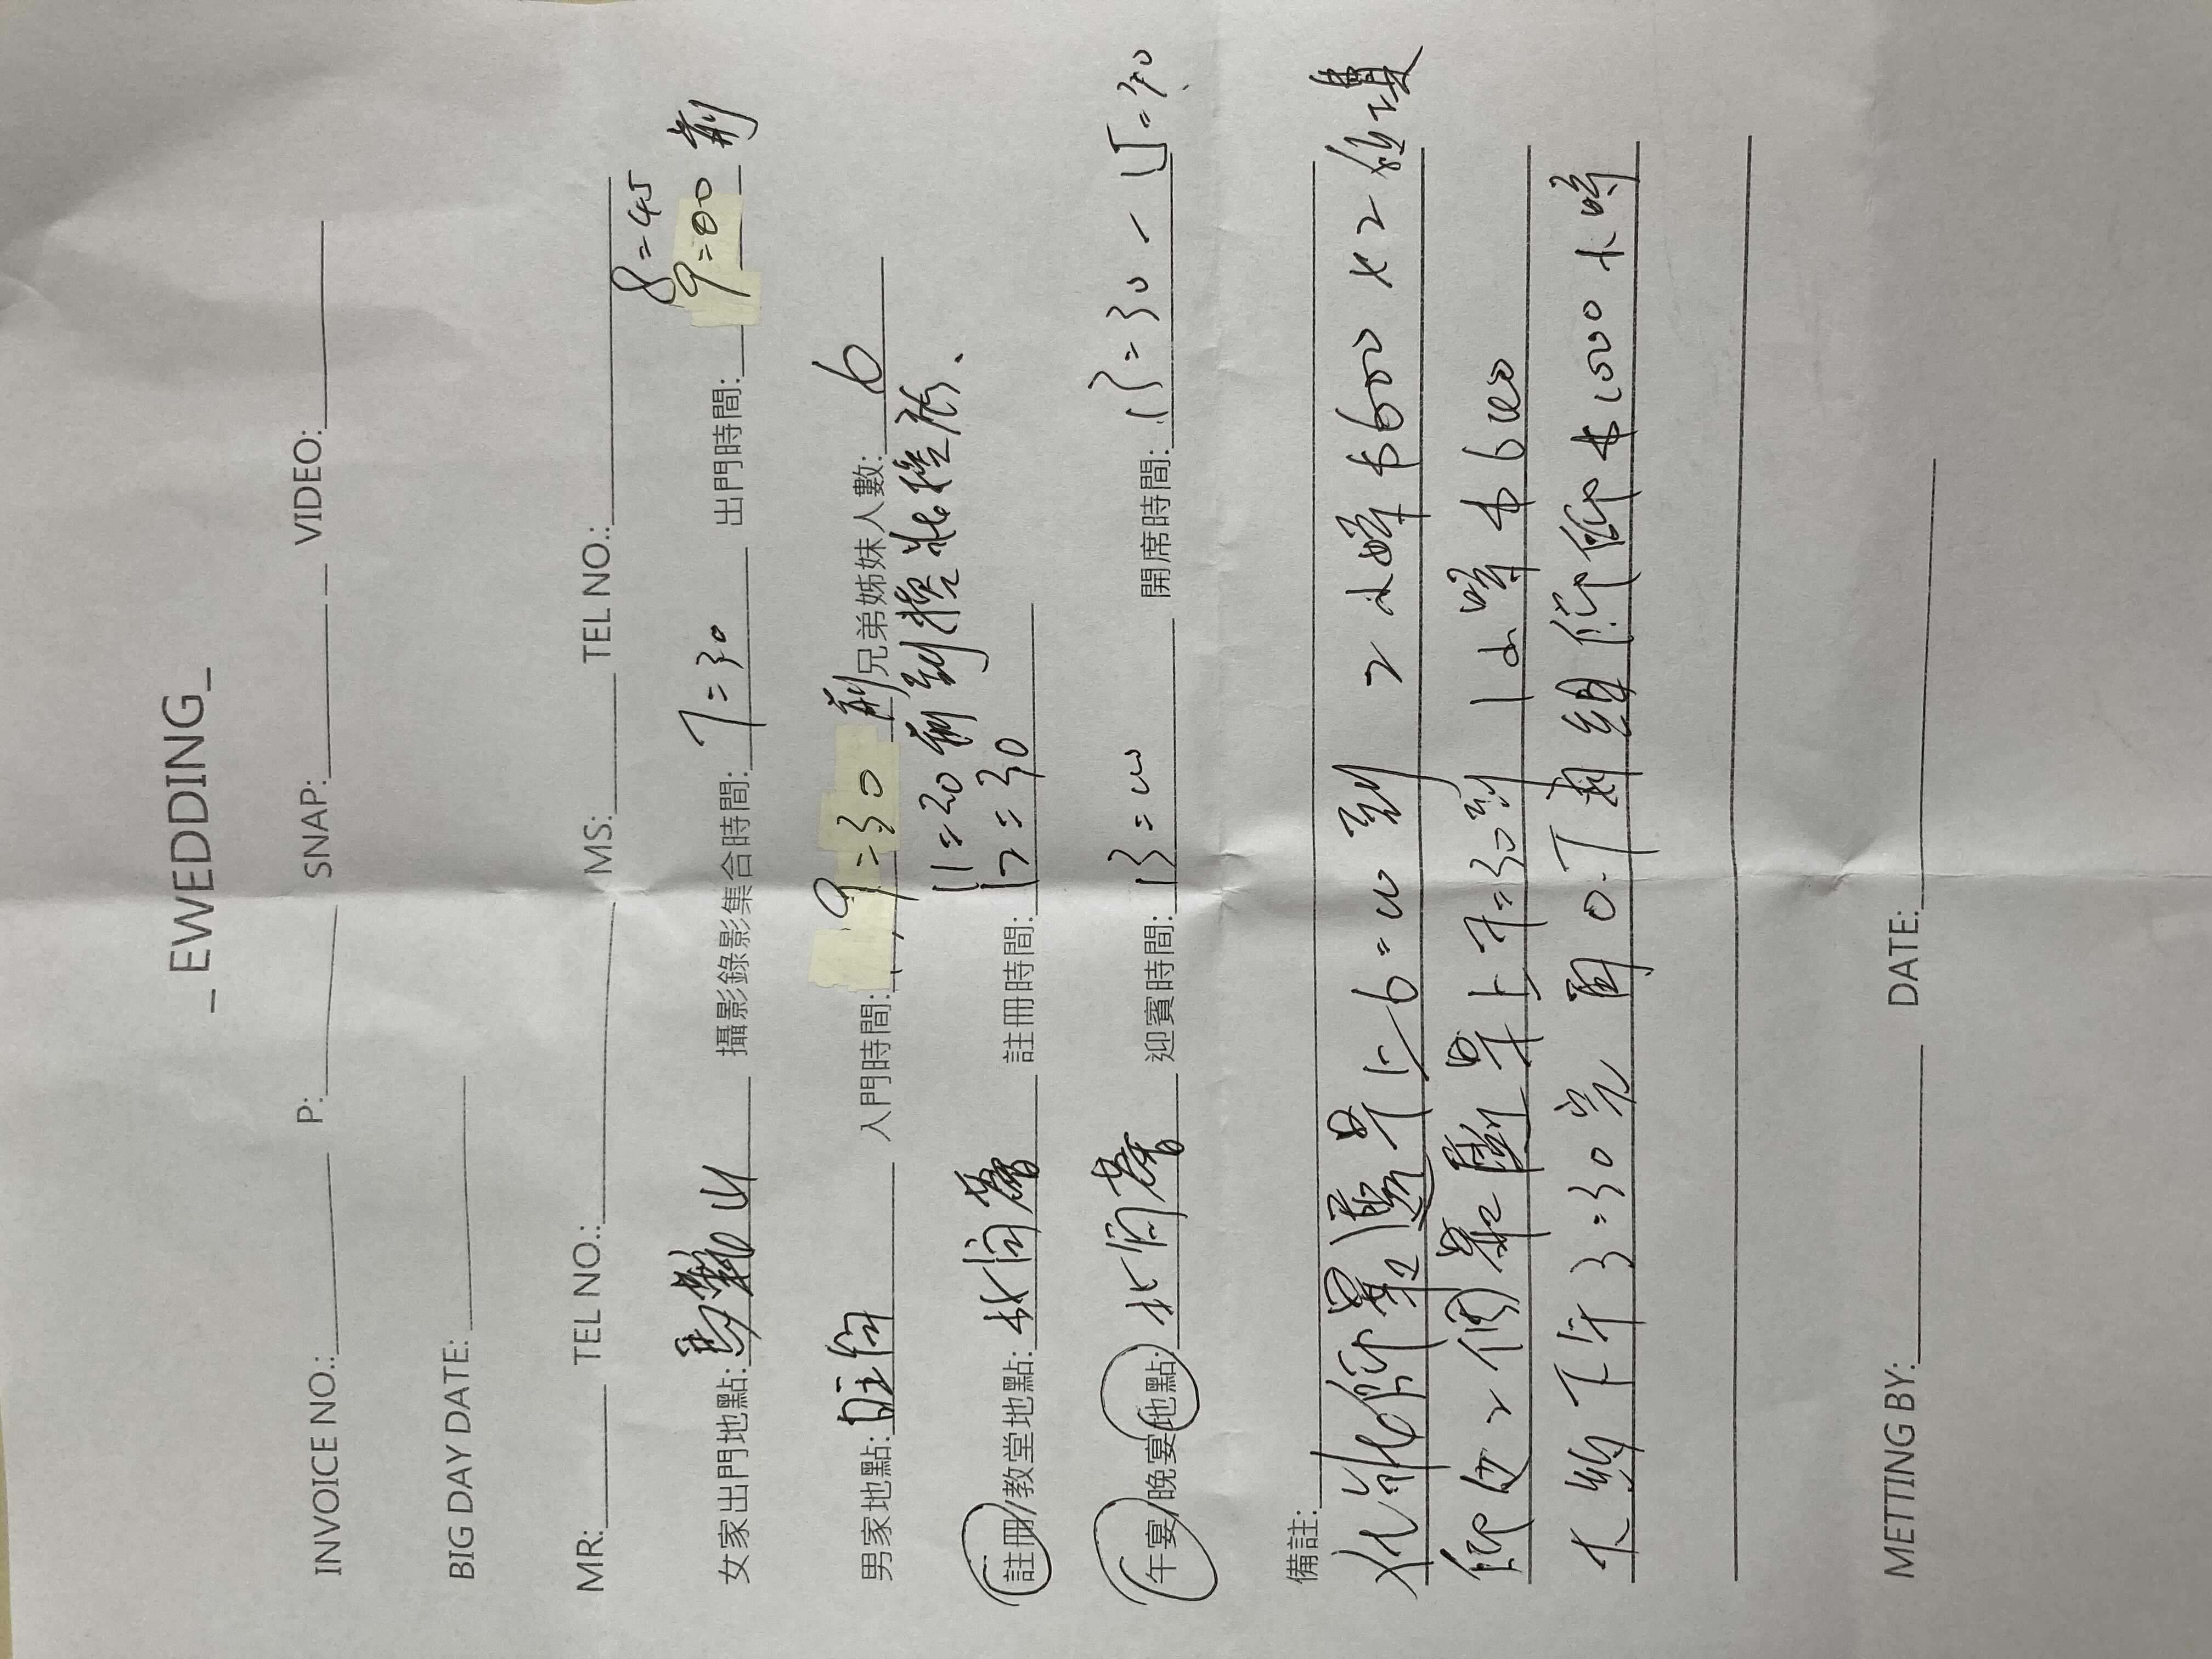 _ EWEDDING_
INVOICE NO.:__________ P:__________ SNAP:__________ __ VIDEO:__________
BIG DAY DATE: __________
MR:________ TEL NO.:__________ MS:________ TEL NO.:__________
8=45
女家出門地點: 馬鞍山 攝影錄影集合時間: 7=30 出門時間: 9=00 前
男家地點: 旺角 入門時間: 9=30 前 兄弟姊妹人數: 6
11=20 前到換妝換衫、
註冊/教堂地點: 北角 註冊時間: 12=30
午宴/晚宴地點: 北角 迎賓時間: 13=00 開席時間: 13=30 - 15=30
備註:
化妝師最遲早上6=00 到 2小時 $600 x 2
師父2個最遲早上7=30到 1小時 $600
大約下午3=30完 再O.T 兩組師 $1000 小時
METTING BY:__________ DATE:__________